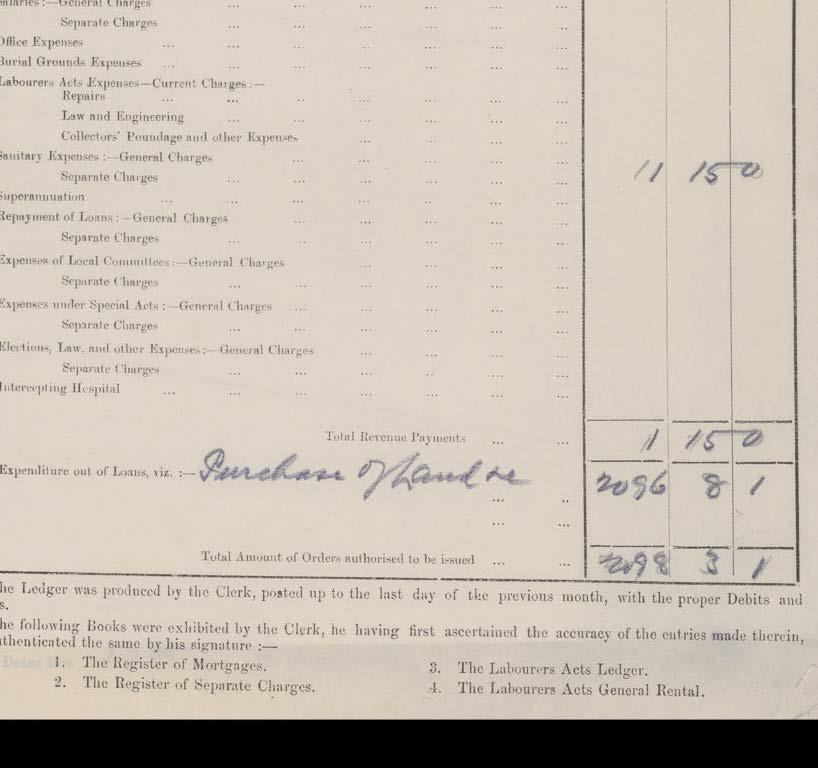 alaries :—General Charges ... ... ... ... ...
Separate Charges ... ... ... ... ... ...
Office Expenses ... ... ... ... ... ... ...
Burial Grounds Expenses ... ... ... ... ... ... ...
Labourers Acts Expenses—Current Charges :—
Repairs ... ... .. ... ... ... ...
Law and Engineering ... ... ... ... ... ...
Collectors' Poundage and other Expenses ... ... ... ...
Sanitary Expenses :—General Charges ... ... ... ... ...
Separate Charges ... ... ... ... ... ... 11 15 0
Superannuation ... ... ... ... ... ... ...
Repayment of Loans :—General Charges ... ... ... ... ...
Separate Charges ... ... ... ... ... ...
Expenses of Local Committees :—General Charges ... ... ... ...
Separate Charges ... ... ... ... ... ...
Expenses under Special Acts :—General Charges ... ... ... ... ...
Separate Charges ... ... ... ... ... ...
Elections, Law, and other Expenses :—General Charges ... ... ... ...
Separate Charges ... ... ... .. ... ...
Intercepting Hospital ... ... ... ... ... ... ...
Total Revenue Payments ... ... 1 15 0
Expenditure out of Loans, viz. :— Purchase of Land &c ... .. 2096 8 1
... ...
Total Amount of Orders authorised to be issued ... ... 2098 3 1
he Ledger was produced by the Clerk, posted up to the last day of the previous month, with the proper Debits and
s.
he following Books were exhibited by the Clerk, he having first ascertained the accuracy of the entries made therein,
thenticated the same by his signature :—
1. The Register of Mortgages.
2. The Register of Separate Charges.
3. The Labourers Acts Ledger.
4. The Labourers Acts General Rental.